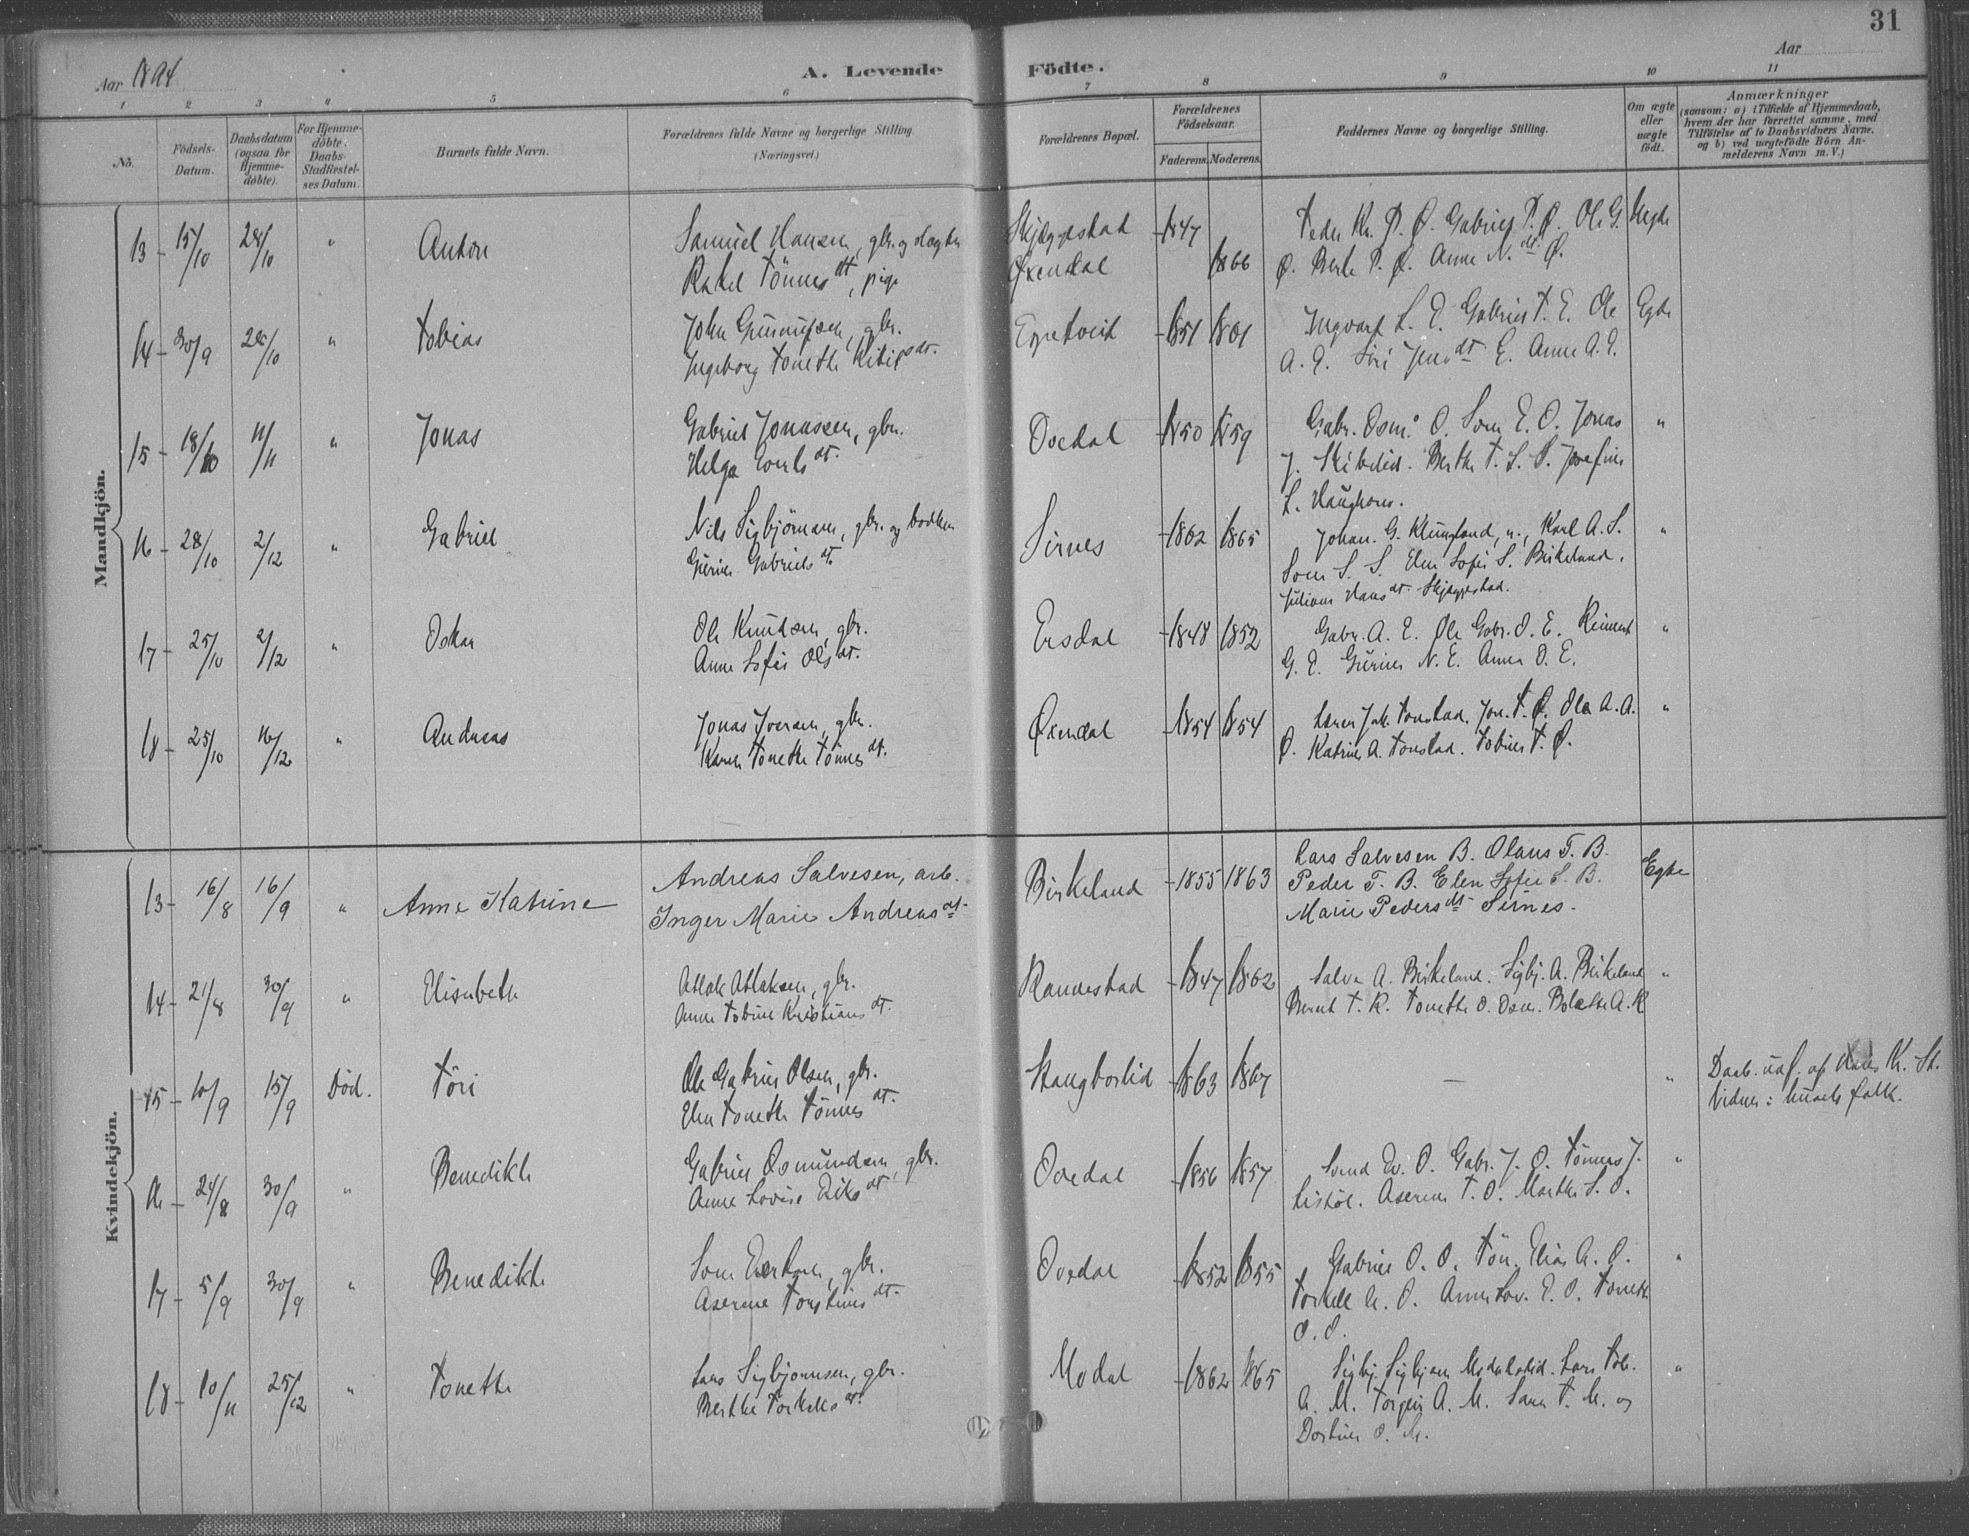 31
Aar 1894
A. Levende Födte.
Aar
1 2 3 4 5 6 7 8 9 10 11
No.
Födsels-Datum.
Daabsdatum (ogsaa for Hjemmedöbte).
For Hjemmedöbte: Daabs-Stadfæstelses Datum.
Barnets fulde Navn.
Forældrenes fulde Navne og borgerlige Stilling.
(Næringsvei.)
Forældrenes Bopæl.
Forældrenes Födselsaar.
Faderens. Moderens.
Faddernes Navne og borgerlige Stilling.
Om ægte eller uægte födt.
Anmærkninger
(saasom: a) i Tilfælde af Hjemmedaab,
hvem der har forrettet samme, med
Tilföielse af to Daabsvidners Navne,
og b) ved uægtefödte Börn Anmelderens Navn m. V.)
Mandkjön.
13 15/10 28/10 " Anton
Samuel Hansen, gbr. og
Rakel Tönnesdt, pige
Skjeggestad
Øxendal
1847
1866
Peder Kr. P. Ø. Gabriel P. Ø. Ole G.
Ø. Berte P. Ø. Anne N.dt Ø.
Uegte
14 30/9 28/10 " Tobias
John
Ingeborg Tonette Ketilsdt.
Egtveit
1851
Gabriel T. E. Ole
A. E. Siri dt E. Anne A. E.
Egte
15 18/10 11/11 " Jonas
Gabriel Jonassen, gbr.
Helga dt.
Ovedal
1850 1859
Gabr. Osm. O. Sven E. O. Jonas
J. Berthe T. S. Josefine
L. Haughom.
"
16 28/10 2/12 " Gabriel
Nils Sigbjörnsen, gbr. og
Gurine Gabrielsdt.
Sirnes
1862 1865
Johan G. Klungland, u., Karl A. S.
Sven S. S. Elen Sofie S. Birkeland.
Juliane Hansdt. Skjeggestad.
"
17 25/10 2/12 " Oskar
Ole Knudsen, gbr.
Anne Sofie Olsdt.
Ersdal
1848 1852
Gabr. A. E. Ole Gabr. O. E. Reinert
G. E. Gurine N. E. Anna O. E.
"
18 25/10 16/12 " Andreas
Jonas Iversen, gbr.
Karen Tonette Tönnesdt.
Øxendal
1854 1854
Jak. Tonstad. Jon. T. Ø. Ole A. A.
Ø. Katrine A. Tonstad. Tobine T. Ø.
"
Kvindekjön.
13 16/8 16/9 " Anne Katrine
Andreas Salvesen, arb.
Inger Marie Andreasdt.
Birkeland
1855 1863
Lars Salvesen B. Olaus T. B.
Peder T. B. Elen Sofie S. B.
Marie Pedersdt Sirnes.
Egte
14 21/8 30/9 " Elisabeth
Atlak Atlaksen, gbr.
Anne Tobine Kristiansdt.
Raunestad
1847 1862
Salve A. Birkeland. Sigbj. A. Birkeland
Bernt T. R. Tonette O. Bolette A. R
"
15 10/9 15/9 Död. Töri
Ole Gabriel Olsen, gbr.
Elen Tonette Tönnesdt.
Skaugborlid
1863 1867
—
"
Daab. udf. af K. St.
Vidner: husets folk.
16 24/8 30/9 " Benedikte
Gabriel Osmundsen, gbr.
Anne Lovise dt.
Ovedal
1856 1857
Svend O. Gabr. J. O. Tönnes J.
Aserine T. O. Marthe S. O.
"
17 5/9 30/9 " Benedikte
Sven gbr.
Aserine dt.
Ovedal
1852 1855
Gabriel O. O. Tön. Elias A. O.
Torkell A. O. Anne Lov. E. O. Tonette
O. O.
"
18 10/11 25/12 " Tonette
Lars Sigbjörnsen, gbr.
Berthe Torkelsdt.
Modal
1862 1865
Sigbj.
A. M. Torgeir A. M. T. M. og
Dortine O. M.
"